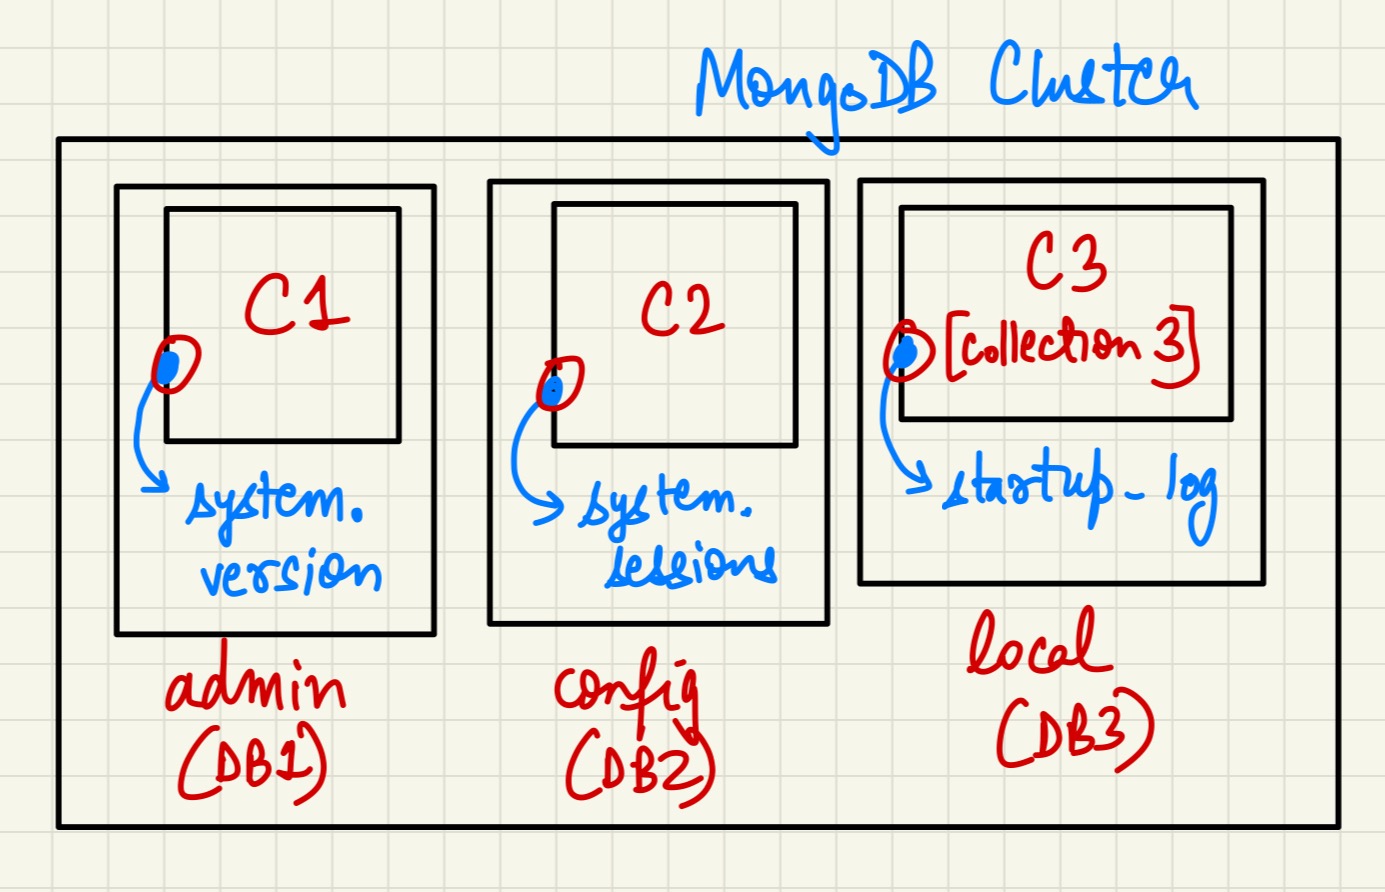 MongoDB Cluster
C1
system.
version
admin
(DB1)
C2
system.
sessions
config
(DB2)
C3
[collection 3]
startup_log
local
(DB3)